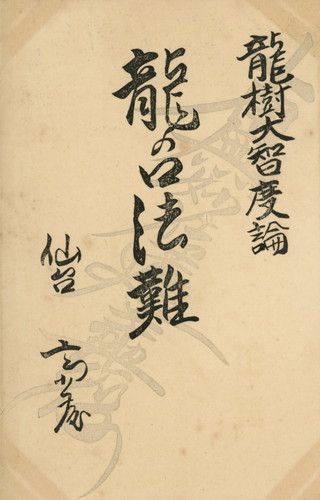 龍樹大智度論
龍の口法難
仙台